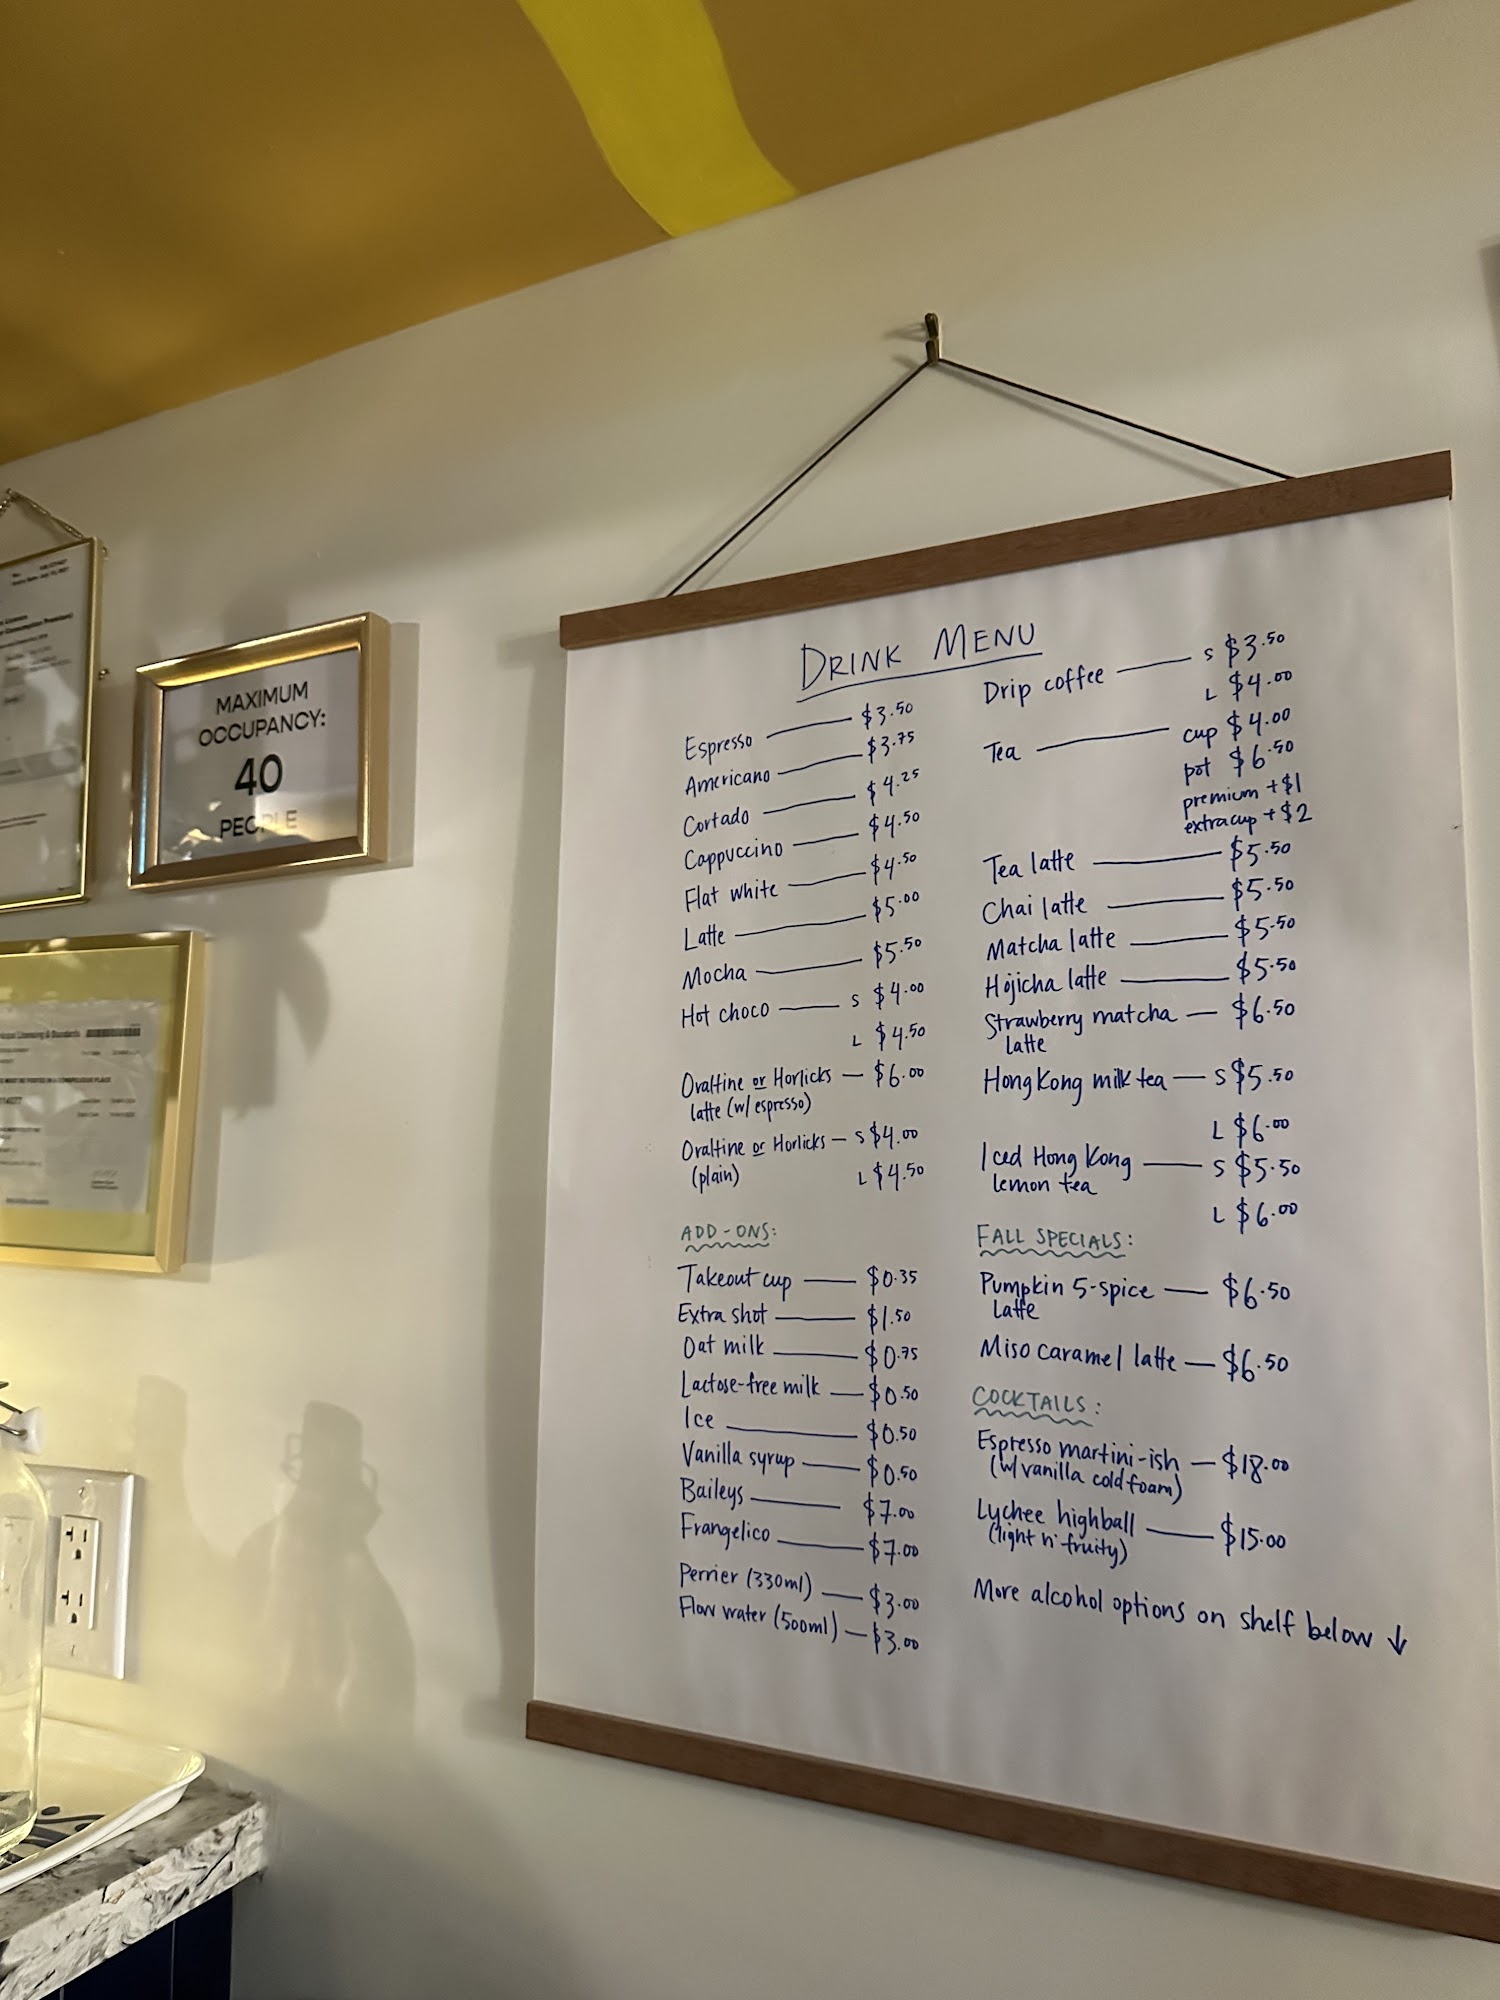 MAXIMUM
OCCUPANCY:
40
PEOPLE
DRINK MENU
Espresso $3.50
Americano $3.75
Cortado $4.25
Cappuccino $4.50
Flat white $4.50
Latte $5.00
Mocha $5.50
Hot choco S $4.00
L $4.50
Ovaltine or Horlicks $6.00
latte (w/ espresso)
Ovaltine or Horlicks S $4.00
(plain) L $4.50
ADD-ONS:
Takeout cup $0.35
Extra shot $1.50
Oat milk $0.75
Lactose-free milk $0.50
Ice $0.50
Vanilla syrup $0.50
Baileys $7.00
Frangelico $7.00
Perrier (330ml) $3.00
Flow water (500ml) $3.00
Drip coffee S $3.50
L $4.00
Tea cup $4.00
pot $6.50
premium +$1
extra cup +$2
Tea latte $5.50
Chai latte $5.50
Matcha latte $5.50
Hojicha latte $5.50
Strawberry matcha $6.50
latte
Hong Kong milk tea S $5.50
L $6.00
Iced Hong Kong S $5.50
lemon tea
L $6.00
FALL SPECIALS:
Pumpkin 5-spice $6.50
Latte
Miso caramel latte $6.50
COCKTAILS:
Espresso martini-ish $18.00
(w/ vanilla cold foam)
Lychee highball $15.00
(light n' fruity)
More alcohol options on shelf below ↓